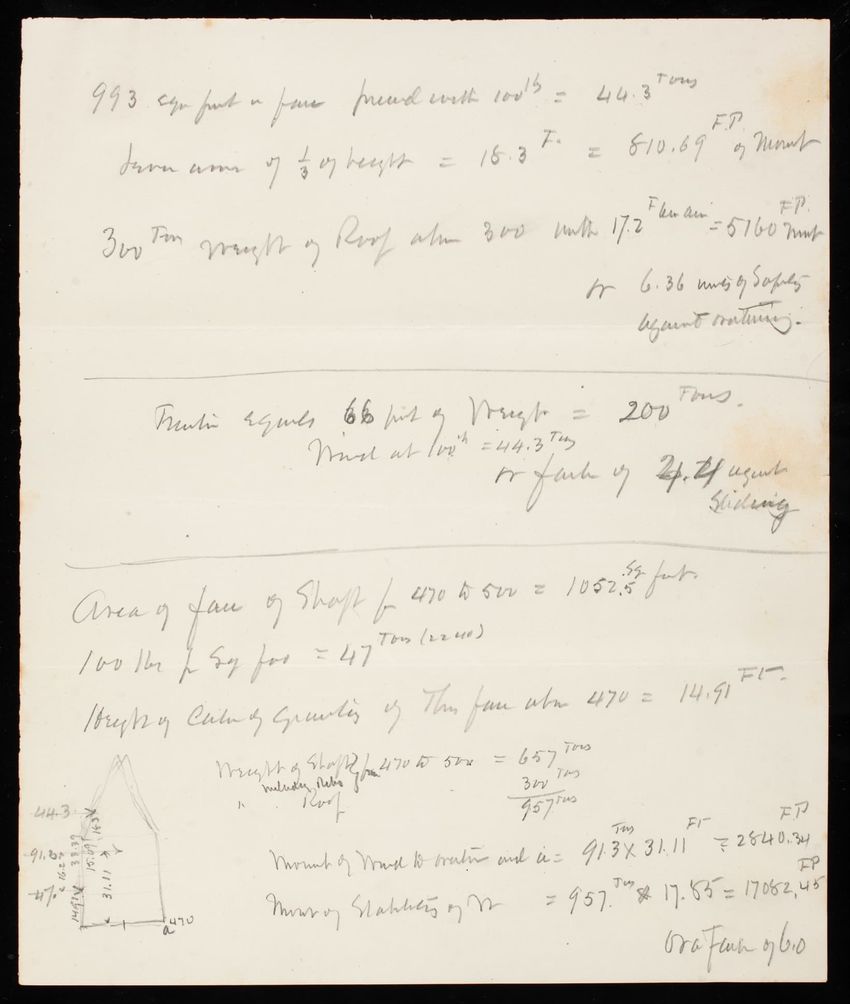 993 sqr feet in face pressed with 100 lb = 44.3 Tons
lever arm of 1/3 of height = 18.3 F. = 810.69 F.P. of Momt
300 Ton weight of Roof above 300 with 17.2 F lever arm = 5160 F.P. momt
or 6.36 times of Safety
against overturning.
Friction equals 66 pct of Weight = 200 Tons.
Wind at 100 lb = 44.3 Tons
or factor of against
Sliding
Area of face of Shaft fr 470 to 500 = 1052.5 Sq feet.
100 lbs pr Sq foot = 47 Tons (2240)
Height of Center of Gravity of this face above 470 = 14.91 Ft.
Weight of Shaft from 470 to 500 = 657 Tons
including Ribs
" Roof 300 Tons
957 Tons
44.3
91.3
47
33.39
16.27
14.91
15.09
14.3
31.11
470
a
Momt of Wind to overturn end a = 91.3 Tons X 31.11 Ft = 2840.34 F.P
Momt of Stability of Wt = 957. Tons X 17.85 = 17082.45 F.P
Or a Factor of 6.0